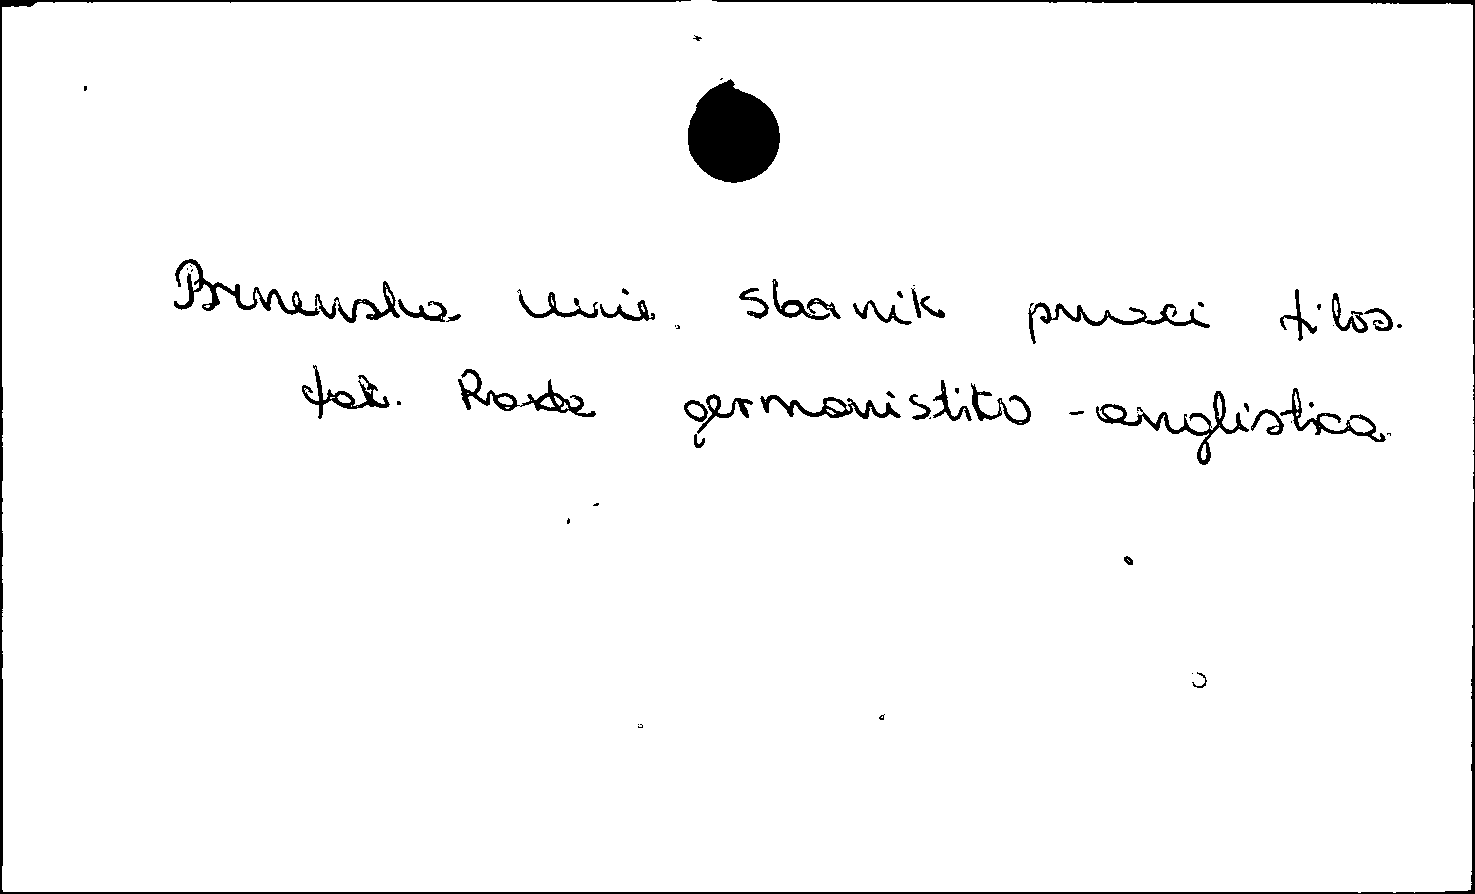 Brnenska univ. sbornik praci filos.
fak. Rada germanistiko-anglistica